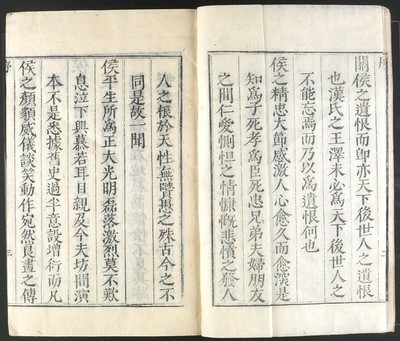 序
關侯之遺恨而卽亦天下後世人之遺恨
也漢氏之王澤未必為天下後世人之
不能忘焉而乃以為遺恨何也
侯之精忠大節感激人心愈久而愈深是
知為子死孝為臣死忠兄弟夫婦朋友
之間仁愛惻怛之情慷慨悲憤之發人
人之根於天性無賢愚之殊古今之不
同是故一聞
侯平生所為正大光明磊落激烈莫不歎
息泣下興慕若耳目親及今夫坊間演
本不是悉據舊史過半意設增衍而凡
侯之顏貌威儀談笑動作宛然良畫之傳
序
三